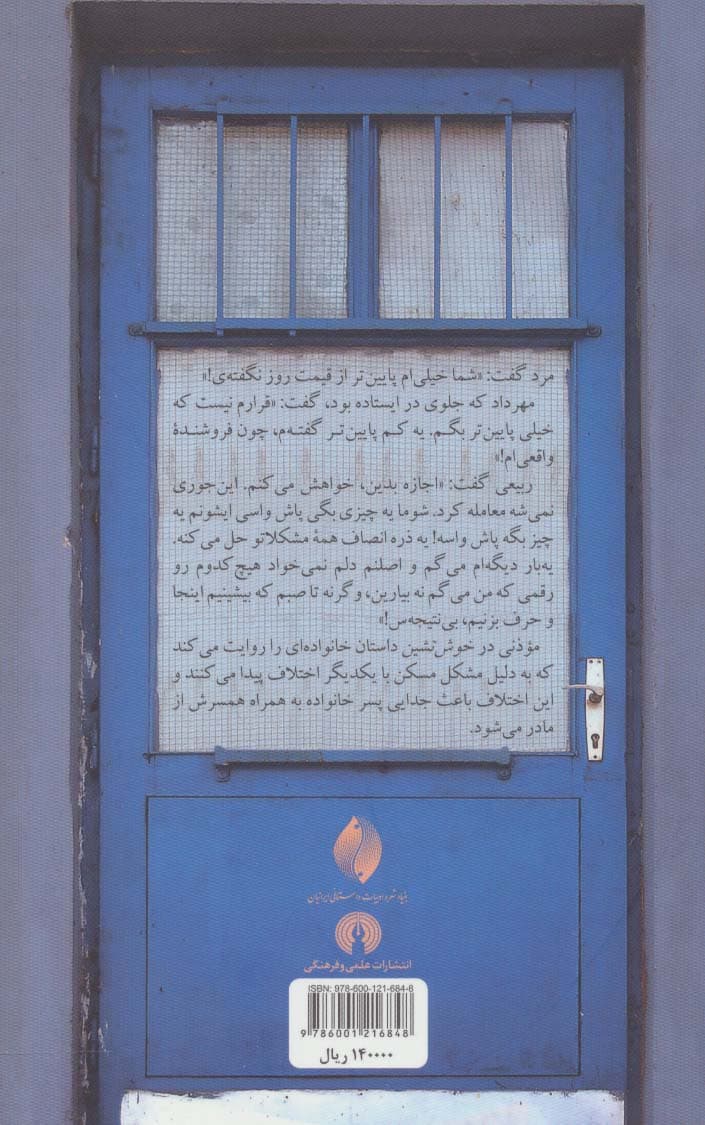 مرد گفت: «شما خیلی‌ام پایین‌تر از قیمت روز نگفته‌ی!»
مهرداد که جلوی در ایستاده بود، گفت: «قرارم نیست که
خیلی پایین‌تر بگم. یه کم پایین‌تر گفته‌م، چون فروشندهٔ
واقعی‌ام!»
ربیعی گفت: «اجازه بدین، خواهش می‌کنم. این‌جوری
نمی‌شه معامله کرد. شوما یه چیزی بگی پاش واسی ایشونم یه
چیز بگه پاش واسه! یه ذره انصاف همهٔ مشکلاتو حل می‌کنه.
یه‌بار دیگه‌ام می‌گم و اصلنم دلم نمی‌خواد هیچ‌کدوم رو
رقمی که من می‌گم نه بیارین، وگرنه تا صبم که بیشینیم اینجا
و حرف بزنیم، بی‌نتیجه‌س!»
مؤذنی در خوش‌نشین داستان خانواده‌ای را روایت می‌کند
که به دلیل مشکل مسکن با یکدیگر اختلاف پیدا می‌کنند و
این اختلاف باعث جدایی پسر خانواده به همراه همسرش از
مادر می‌شود.
بنیاد شعر و ادبیات داستانی ایرانیان
انتشارات علمی و فرهنگی
ISBN: 978-600-121-684-8
9 786001 216848
۱۴۰۰۰۰ ریال